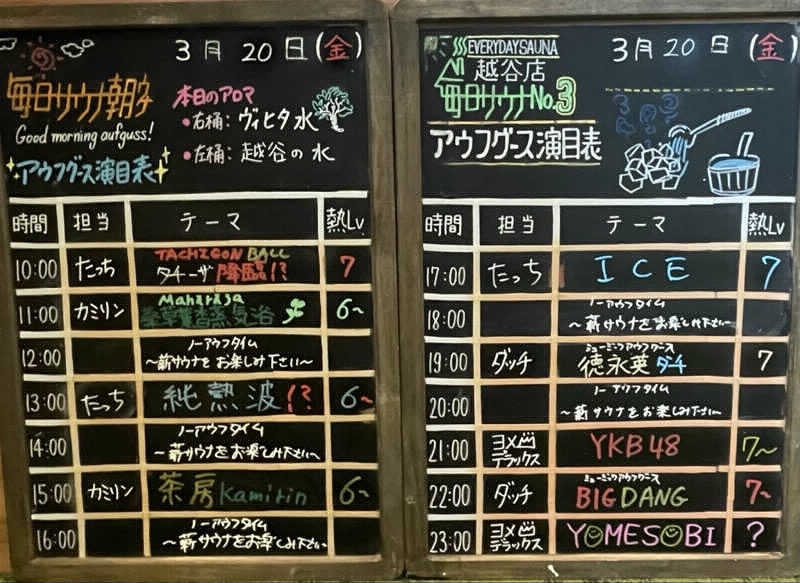 3月20日(金)
毎日サウナ朝字
Good morning aufguss!
アウフグース演目表
本日のアロマ
•右桶：ヴィヒタ水
•左桶：越谷の水
時間 担当 テーマ 熱Lv
10:00 たっち TACHIGON BALL
タチーザ降臨!? 7
11:00 カミリン Maharaja
薬草薫香蒸気浴 6~
12:00 ノーアウフタイム
~薪サウナをお楽しみ下さい~
13:00 たっち 純熱波!? 6~
14:00 ノーアウフタイム
~薪サウナをお楽しみ下さい~
15:00 カミリン 茶房Kamirin 6~
16:00 ノーアウフタイム
~薪サウナをお楽しみ下さい~
EVERYDAY SAUNA
越谷店
毎日サウナNo.3
3月20日(金)
アウフグース演目表
時間 担当 テーマ 熱Lv
17:00 たっち ICE 7
18:00 ノーアウフタイム
~薪サウナをお楽しみ下さい~
19:00 ダッチ ミュージックアウフグース
徳永英ダーチ 7
20:00 ノーアウフタイム
~薪サウナをお楽しみ下さい~
21:00 ヨメ
デラックス YKB48 7~
22:00 ダッチ ミュージックアウフグース
BIGDANG 7~
23:00 ヨメ
デラックス YOMESOBI ?